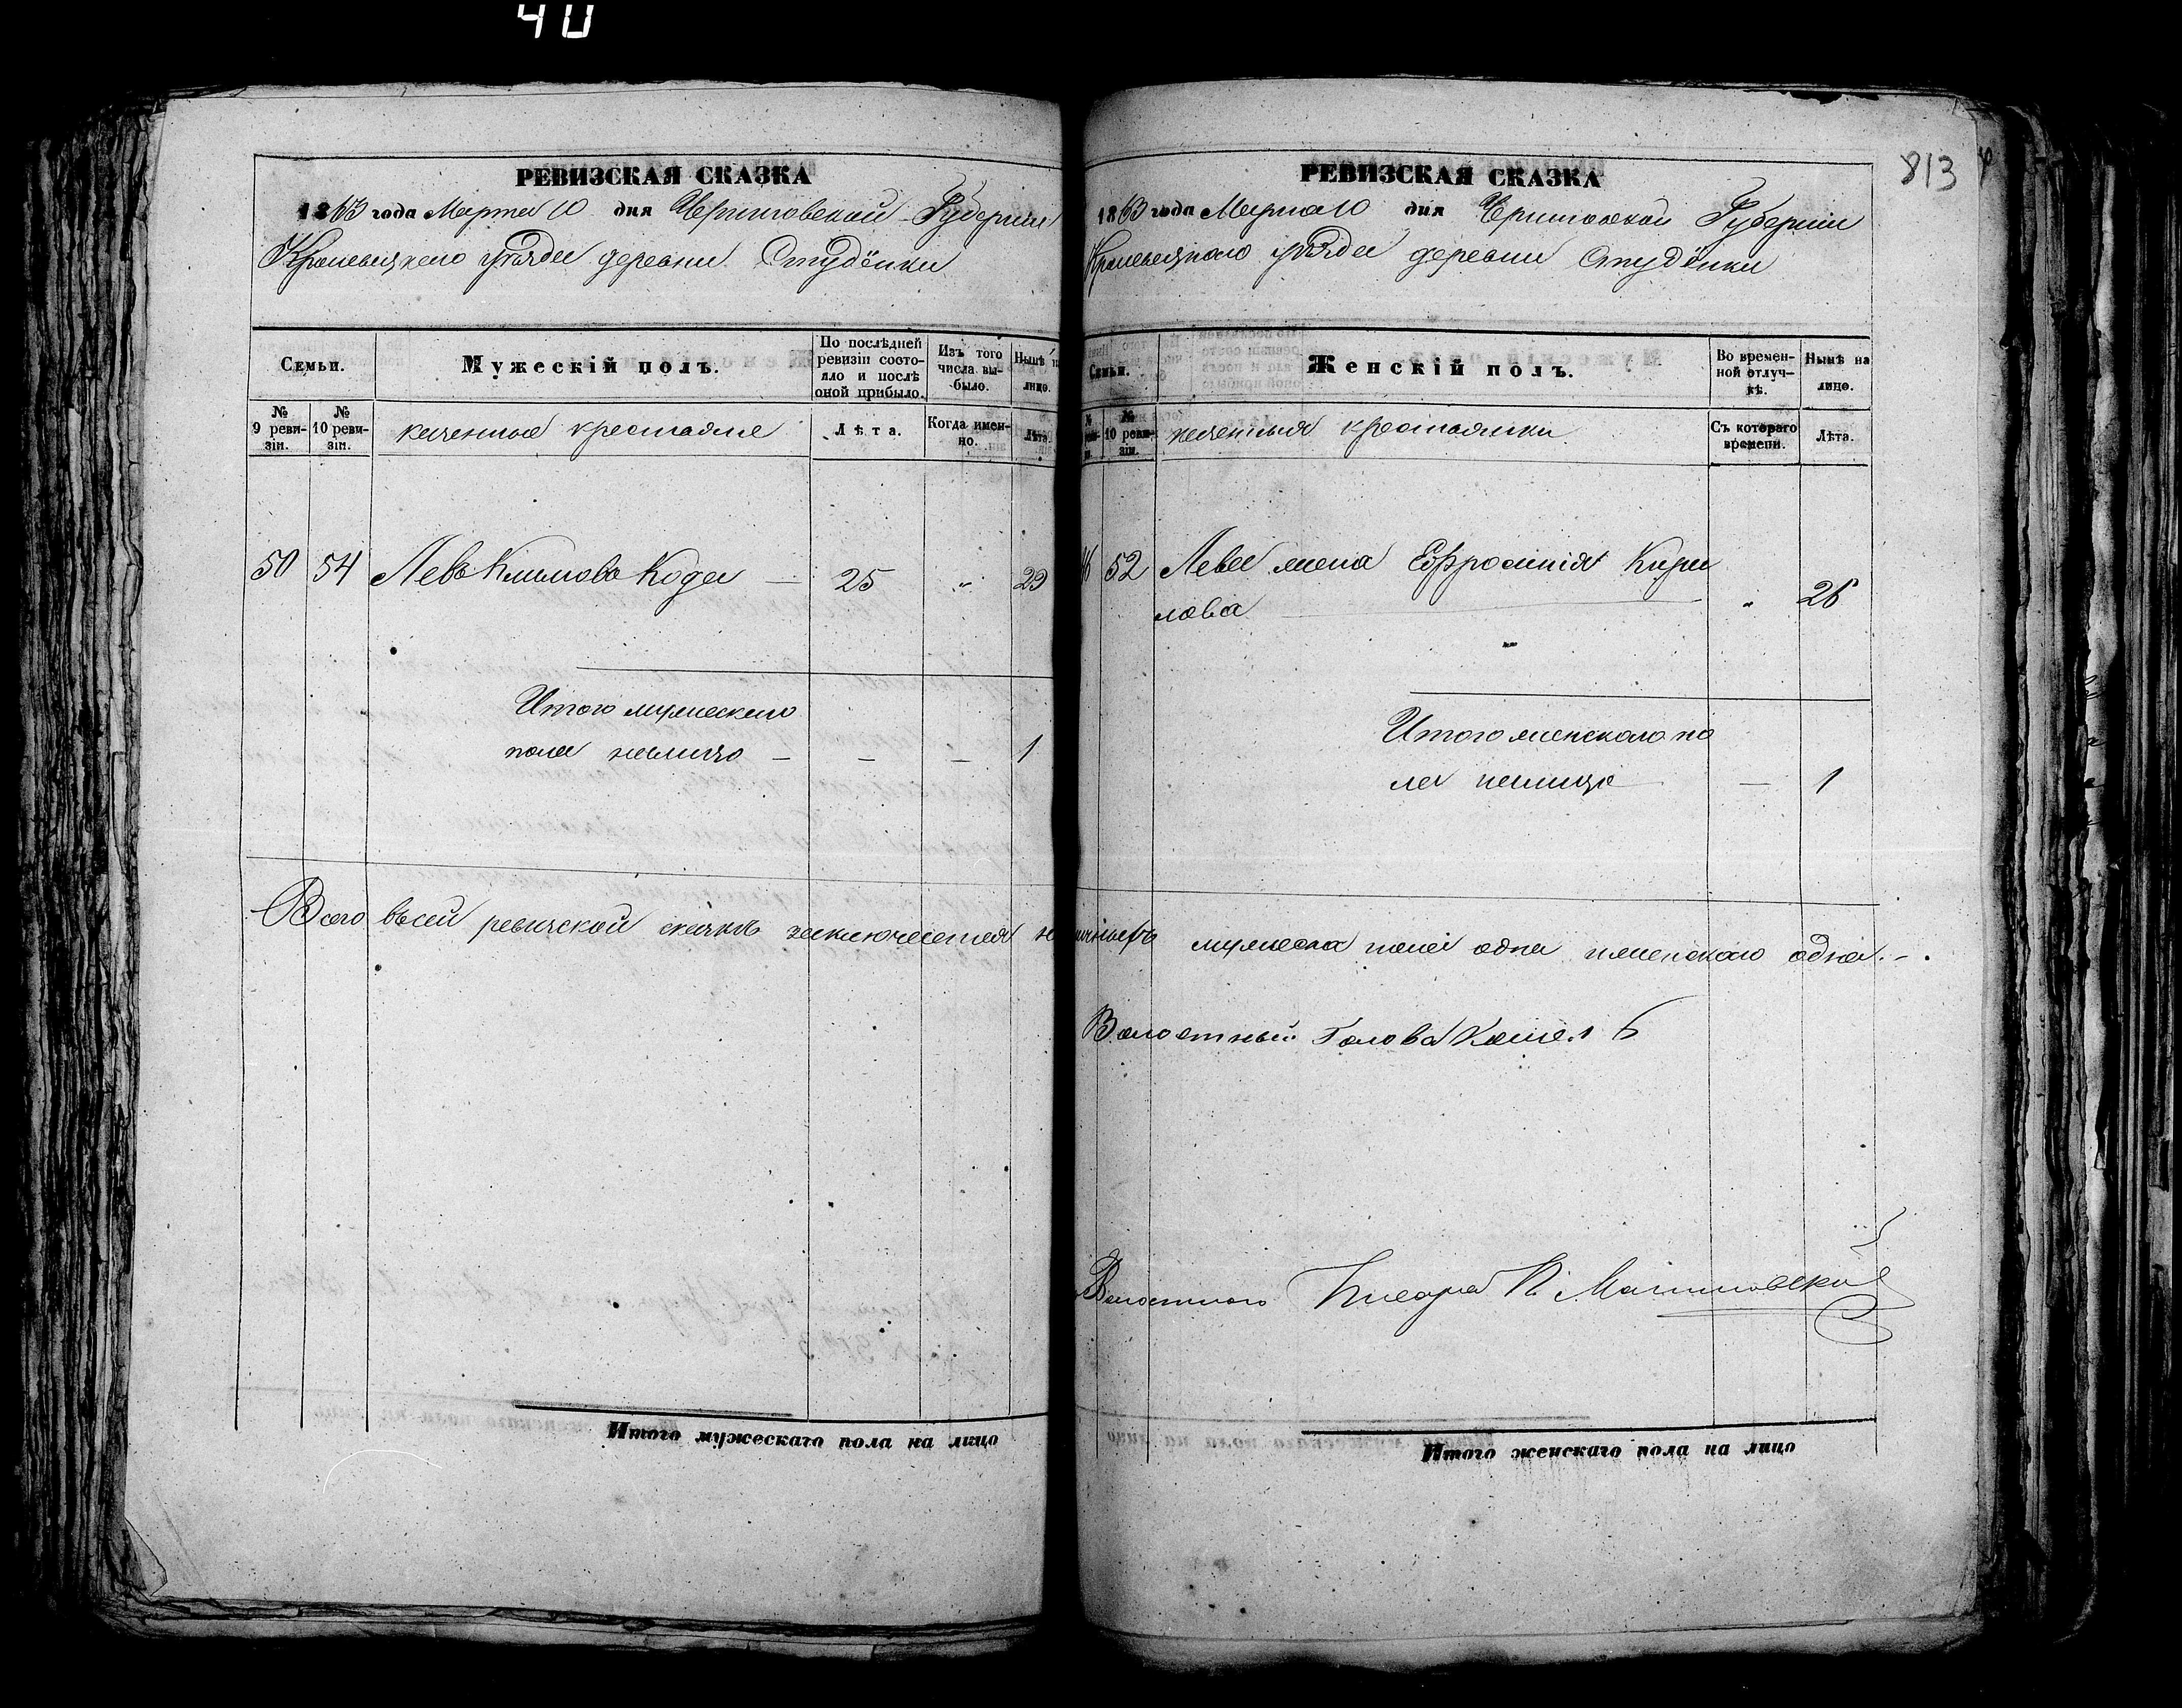 40
РЕВИЗСКАЯ СКАЗКА
1863 года Марта 10 дня Черниговской Губернии
Кролевецкого уѣзда деревни Студёнки
Семьи.
Мужескій полъ.
По послѣдней ревизіи состояло и послѣ оной прибыло.
Изъ того числа выбыло.
Нынѣ на лицо.
№ 9 ревизіи.
№ 10 ревизіи.
казенные крестьяне
Лѣта.
Когда именно.
Лѣта.
50 54 Левъ Климовъ Кода — 25 „ 29
Итого мужеского
пола налицо — — — 1
Итого мужескаго пола на лицо
813
РЕВИЗСКАЯ СКАЗКА
1863 года Марта 10 дня Черниговской Губернии
Кролевецкого уѣзда деревни Студёнки
Семьи.
Женскій полъ.
Во временной отлучкѣ.
Нынѣ на лицо.
№ 10 ревизіи.
казенныя крестьянки
Съ котораго времени.
Лѣта.
52 Льва жена Ефросинія Кири
лова „ 26
Итого женского по
ла налицо — 1
Всего въ сей ревизской сказкѣ заключается наличныхъ мужеска пола одна и женского одна. -.
Волостный Голова
Волостного Писарь
Итого женскаго пола на лицо